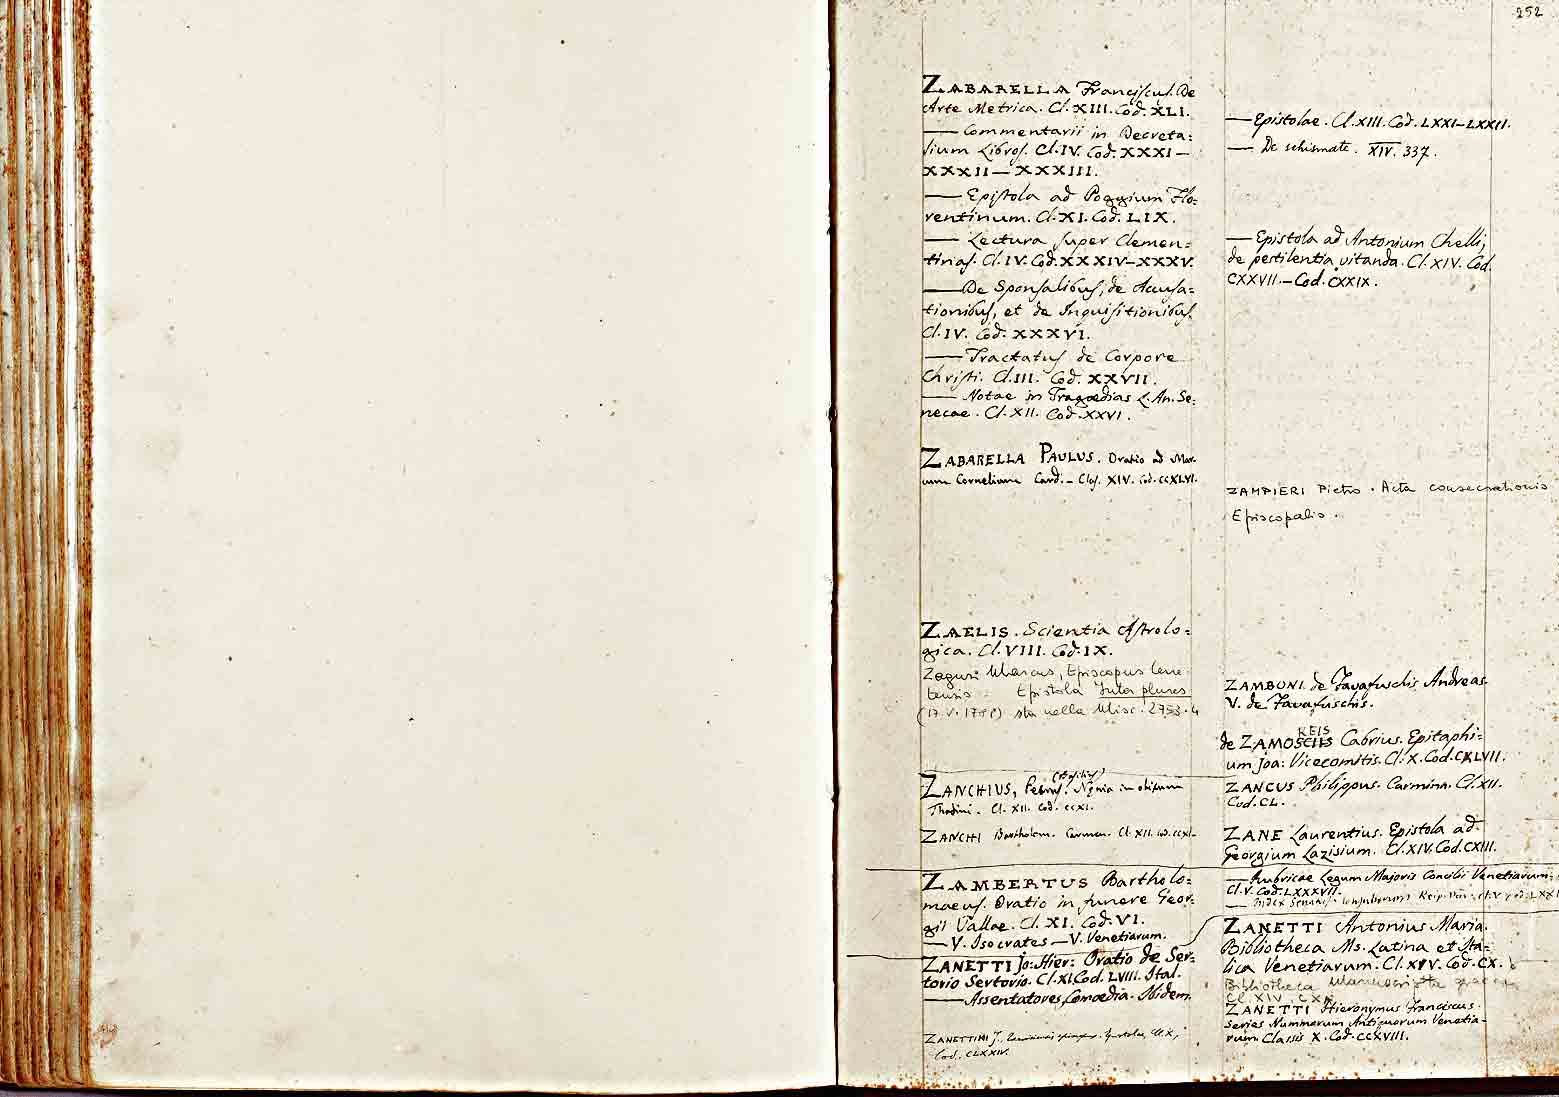 252
ZABARELLA Franciscus. De
Arte Metrica. Cl. XIII. Cod. XLI.
— Commentarii in Decreta:
lium Libros. Cl. IV. Cod. XXXI —
XXXII — XXXIII.
— Epistola ad Poggium Flo:
rentinum. Cl. XI. Cod. LIX.
— Lectura super Clemen:
tinas. Cl. IV. Cod. XXXIV–XXXV.
— De Sponsalibus, de Acusa:
tionibus, et de Inquisitionibus.
Cl. IV. Cod. XXXVI.
— Tractatus de Corpore
Christi. Cl. III. Cod. XXVII.
— Notae in Tragoedias L. An. Se:
necae. Cl. XII. Cod. XXVI.
ZABARELLA PAULUS. Oratio ad Mar.
cum Cornelium Card. – Clas. XIV. Cod. CCXLVI.
ZAELIS. Scientia Astrolo:
gica. Cl. VIII. Cod. IX.
Zaguri Marcus, Episcopus Cene
tensis: Epistola Inter plures
(17. V. ) sta nella Misc. 2753. 4
ZANCHIUS, Petrus. (Basilius) Nenia in obitum
Cl. XII. Cod. CCXI.
ZANCHI Bartholom. Carmen. Cl. XII. Cod. CCXI.
ZAMBERTUS Bartholo:
maeus. Oratio in funere Geor:
gii Vallae. Cl. XI. Cod. VI.
— V. Isocrates — V. Venetiarum.
ZANETTI Jo: Hier: Oratio de Ser:
torio Sertorio. Cl. XI. Cod. LVIII. Ital.
— Assentatores, Comoedia. Ibidem.
ZANETTINI J. Epistolae, Cl. X,
Cod. CLXXIV.
— Epistolae. Cl. XIII. Cod. LXXI–LXXII.
— De schismate. XIV. 337.
— Epistola ad Antonium Chelli,
de pestilentia vitanda. Cl. XIV. Cod.
CXXVII. – Cod. CXXIX.
ZAMPIERI Pietro. Acta consecrationis
Episcopalis.
ZAMBONI de Favafuschis Andreas.
V. de Favafuschis.
REIS
de ZAMOSCIIS Cabrius. Epitaphi:
um Joa: Vicecomitis. Cl. X. Cod. CXLVII.
ZANCUS Philippus. Carmina. Cl. XII.
Cod. CL.
ZANE Laurentius. Epistola ad
Georgium Lazisium. Cl. XIV. Cod. CXIII.
— Rubricae Legum Majoris Concilii Venetiarum.
Cl. V. Cod. LXXXVII.
— Index
ZANETTI Antonius Maria.
Bibliotheca Ms. Latina et Ita:
lica Venetiarum. Cl. XIV. Cod. CX.
Bibliotheca Manuscripta graeca
Cl. XIV,
ZANETTI Hieronymus Franciscus.
Series Nummorum Antiquorum Venetia-
rum Classis X. Cod. CCXVIII.